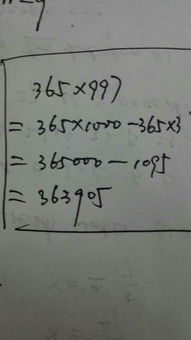 365×997
= 365×1000-365×3
= 365000-1095
= 363905